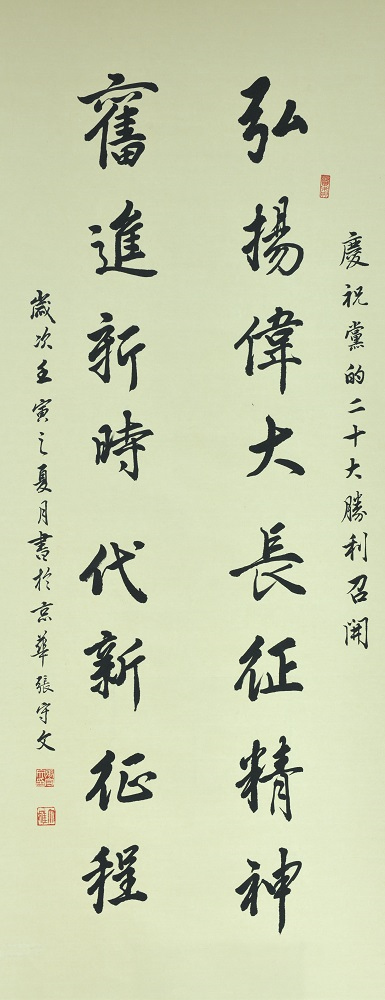 慶祝黨的二十大勝利召開
弘揚偉大長征精神
奮進新時代新征程
歲次壬寅之夏月書於京華張守文